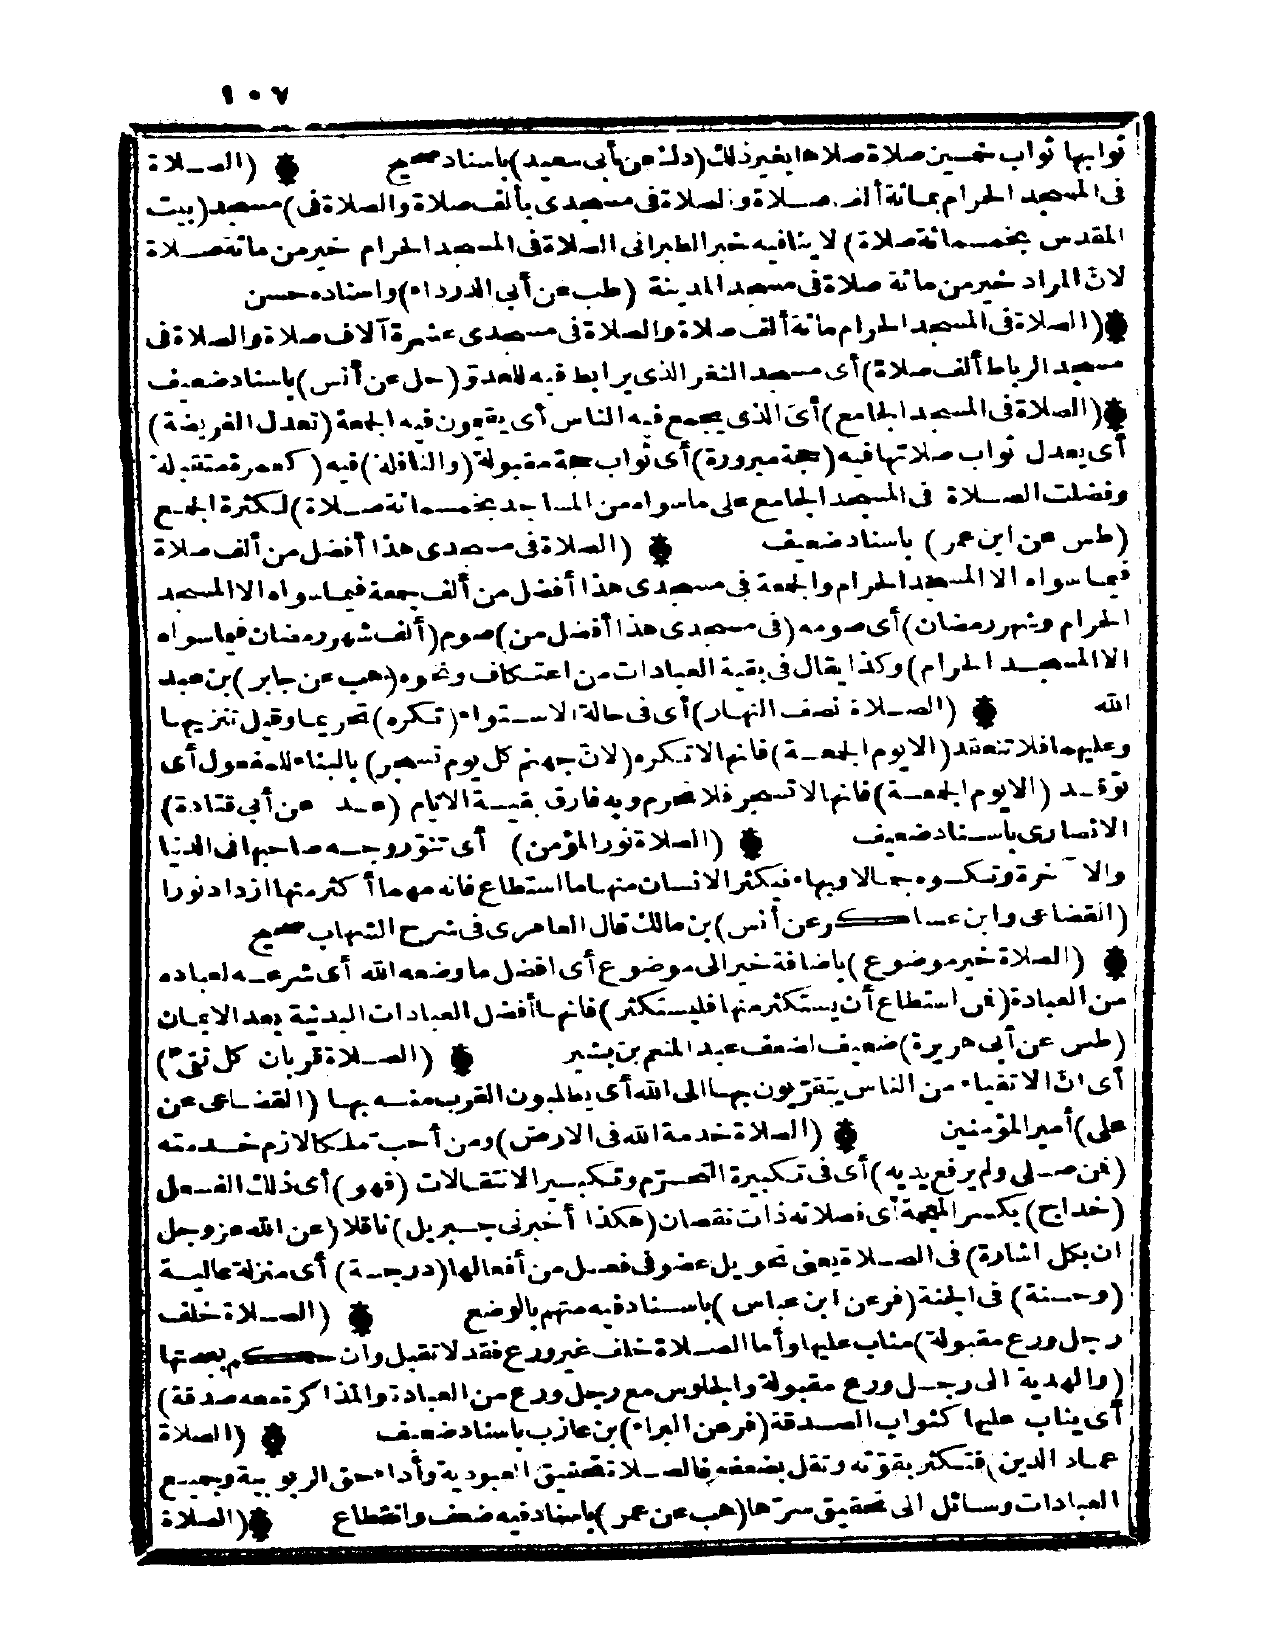 ١٠٧
ثوابها ثواب خمسين صلاة صلاها بغير ذلك (د ك عن أبى سعيد) باسناد صحيح ۞ (الصلاة
فى المسجد الحرام بمائة ألف صلاة والصلاة فى مسجدى بألف صلاة والصلاة فى) مسجد (بيت
المقدس بخمسمائة صلاة) لا ينافيه خبر الطبرانى الصلاة فى المسجد الحرام خير من مائة صلاة
لانّ المراد خير من مائة صلاة فى مسجد المدينة (طب عن أبى الدرداء) واسناده حسن
۞ (الصلاة فى المسجد الحرام مائة ألف صلاة والصلاة فى مسجدى عشرة آلاف صلاة والصلاة فى
مسجد الرباط ألف صلاة) أى مسجد الثغر الذى يرابط فيه للعدوّ (حل عن أنس) باسناد ضعيف
۞ (الصلاة فى المسجد الجامع) أى الذى يجمع فيه الناس أى يقيمون فيه الجمعة (تعدل الفريضة)
أى يعدل ثواب صلاتها فيه (حجة مبرورة) أى ثواب حجة مقبولة (والنافلة) فيه (كعمرة متقبلة
وفضلت الصلاة فى المسجد الجامع على ما سواه من المساجد بخمسمائة صلاة) لكثرة الجمع
(طس عن ابن عمر) باسناد ضعيف ۞ (الصلاة فى مسجدى هذا أفضل من ألف صلاة
فيما سواه الا المسجد الحرام والجمعة فى مسجدى هذا أفضل من ألف جمعة فيما سواه الا المسجد
الحرام وشهر رمضان) أى صومه (فى مسجدى هذا أفضل من) صوم (ألف شهر رمضان فيما سواه
الا المسجد الحرام) وكذا يقال فى بقية العبادات من اعتكاف ونحوه (هب عن جابر) بن عبد
الله ۞ (الصلاة نصف النهار) أى فى حالة الاستواء (تكره) تحريما وقيل تنزيها
وعليهما فلا تنعقد (الا يوم الجمعة) فانها لا تكره (لانّ جهنم كل يوم تسجر) بالبناء للمفعول أى
توقد (الا يوم الجمعة) فانها لا تسجر فلا تحرم وبه فارق بقية الايام (عد عن أبى قتادة)
الانصارى باسناد ضعيف ۞ (الصلاة نور المؤمن) أى تنوّر وجه صاحبها فى الدنيا
والآخرة وتكسوه جمالا وبهاء فيكثر الانسان منها ما استطاع فانه مهما أكثر منها ازداد نورا
(القضاعى وابن عساكر عن أنس) بن مالك قال العامرى فى شرح الشهاب صحيح
۞ (الصلاة خير موضوع) باضافة خير الى موضوع أى افضل ما وضعه الله أى شرعه لعباده
من العبادة (فمن استطاع أن يستكثر منها فليستكثر) فانها أفضل العبادات البدنية بعد الايمان
(طس عن أبى هريرة) ضعيف لضعف عبد المنعم بن بشير ۞ (الصلاة قربان كل تقى)
أى انّ الاتقياء من الناس يتقرّبون بها الى الله أى يطلبون القرب منه بها (القضاعى عن
على) أمير المؤمنين ۞ (الصلاة خدمة الله فى الارض) ومن أحب ملكا لازم خدمته
(فمن صلى ولم يرفع يديه) أى فى تكبيرة التحرّم وتكبير الانتقالات (فهو) أى ذلك الفعل
(خداج) بكسر المعجمة أى فصلاته ذات نقصان (هكذا أخبرنى جبريل) ناقلا (عن الله عز وجل
ان بكل اشارة) فى الصلاة يعنى تحويل عضو فى فعل من أفعالها (درجة) أى منزلة عالية
(وحسنة) فى الجنة (فر عن ابن عباس) باسناد فيه متهم بالوضع ۞ (الصلاة خلف
رجل ورع مقبولة) مثاب عليها وأما الصلاة خلف غير ورع فقد لا تقبل وان حكم بصحتها
(والهدية الى رجل ورع مقبولة والجلوس مع رجل ورع من العبادة والمذاكرة معه صدقة)
أى يثاب عليها كثواب الصدقة (فر عن البراء) بن عازب باسناد ضعيف ۞ (الصلاة
عماد الدين) فتكثر بقوّته وتقل بضعفه فالصلاة تحقيق العبودية وأداء حق الربوبية وجميع
العبادات وسائل الى تحقيق سرّها (هب عن عمر) باسناد فيه ضعف وانقطاع ۞ (الصلاة